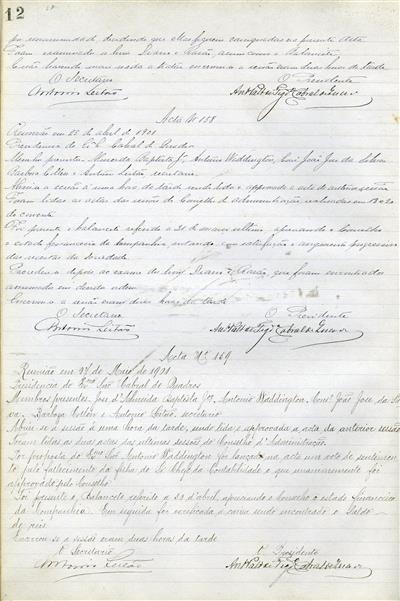 12
por unanimidade, decidindo que ellas ficassem consignadas na presente Acta
Foram examinados os livros Diario e Razão, assim como o Balancete
E não havendo mais nada a tratar encerrou-se a sessão eram duas horas da tarde
O Secretario O Presidente
Antonio Leitão
Acta Nº 158
Reunião em 25 de abril de 1901
Presidencia do Exmo Cabral de Quadros
Membros presentes Almeida Baptista Jr, Antonio Waddington, Consº João José da Silva
e Antonio Leitão, secretario
Abriu-se a sessão á uma hora da tarde sendo lida e approvada a acta da anterior sessão
Foram lidas as actas das sessões do Conselho d'Administração realisadas em 13 e 20
do corrente
Foi presente o balancete referido a 31 de março ultimo, apreciando o Conselho
o estado financeiro da Companhia, notando com satisfação o augmento progressivo
das receitas da Sociedade
Procedeu-se depois ao exame dos livros Diario e Razão, que foram encontrados
arrumados em devida ordem
Encerrou-se a sessão eram duas horas da tarde
O Secretario O Presidente
Antonio Leitão
Acta Nº 169
Reunião em 27 de Maio de 1901
Presidencia do Exmo Snr Cabral de Quadros
Membros presentes, José d'Almeida Baptista Jor, Antonio Waddington, Consº João José da Sil
va, e Antonio Leitão, secretario
Abriu-se a sessão á uma hora da tarde, sendo lida e approvada a acta da anterior sessão
Foram lidas as duas actas das ultimas sessões do Conselho d'Administração.
Por proposta do Exmo Snr Antonio Waddington foi lançado na acta um voto de sentimen
to pelo fallecimento da filha do Sr Chefe da Contabilidade o que unanimemente foi
approvado pelo Conselho
Foi presente o Balancete referido a 30 d'abril, apreciando o Conselho o estado financeiro
da Companhia. Em seguida foi verificada a caixa sendo encontrado o Saldo
de reis
Encerrou-se a sessão eram duas horas da tarde
O Secretario O Presidente
Antonio Leitão